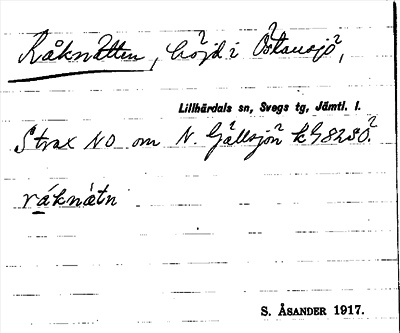 Råknätten, höjd i Östansjö,
Lillhärdals sn, Svegs tg, Jämtl. l.
Strax NO om N. Gällsjön k 98280.
råknätn
S. ÅSANDER 1917.